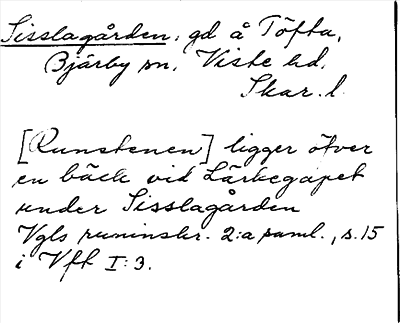 Sisslagården, gd å Töfta,
Bjärby sn, Viste hd.
Skar. l.
[Runstenen] ligger öfver
en bäck vid Lärkegapet
under Sisslagården
Vgls runinskr. 2:a saml., s. 15
i Vff I:3.